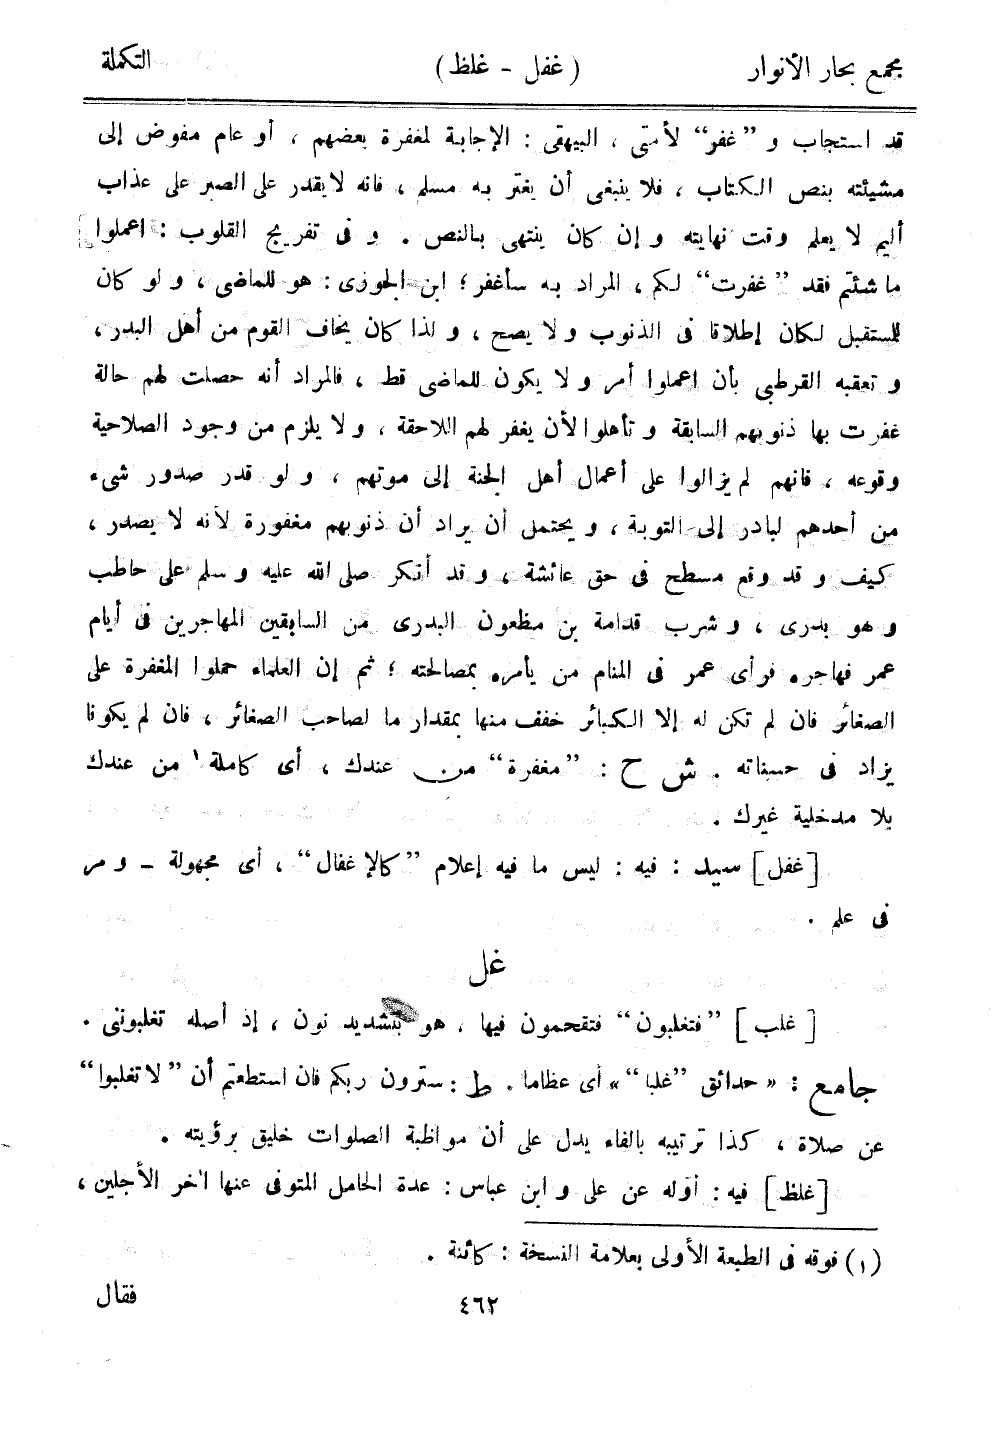 مجمع بحار الأنوار
( غفل - غلظ )
التكملة
قد استجاب و ”غفر“ لأمتى ، البيهقى : الإجابة لمغفرة بعضهم ، أو عام مفوض إلى
مشيئته بنص الكتاب ، فلا ينبغى أن يغتر به مسلم ، فانه لا يقدر على الصبر على عذاب
أليم لا يعلم وقت نهايته و إن كان ينتهى بالنص . و فى تفريج القلوب : اعملوا
ما شئتم فقد ”غفرت“ لكم ، المراد به سأغفر ؛ ابن الجوزى : هو للماضى ، و لو كان
للمستقبل لكان إطلاقا فى الذنوب و لا يصح ، و لذا كان يخاف القوم من أهل البدر ،
و تعقبه القرطبى بأن اعملوا أمر و لا يكون للماضى قط ، فالمراد أنه حصلت لهم حالة
غفرت بها ذنوبهم السابقة و تأهلوا لأن يغفر لهم اللاحقة ، و لا يلزم من وجود الصلاحية
وقوعه ، فانهم لم يزالوا على أعمال أهل الجنة إلى موتهم ، و لو قدر صدور شىء
من أحدهم لبادر إلى التوبة ، و يحتمل أن يراد أن ذنوبهم مغفورة لأنه لا يصدر ،
كيف و قد وقع مسطح فى حق عائشة ، و قد أنكر صلى الله عليه و سلم على حاطب
و هو بدرى ، و شرب قدامة بن مظعون البدرى من السابقين المهاجرين فى أيام
عمر فهاجره فرأى عمر فى المنام من يأمره بمصالحته ؛ ثم إن العلماء حملوا المغفرة على
الصغائر فان لم تكن له إلا الكبائر خفف منها بمقدار ما لصاحب الصغائر ، فان لم يكونا
يزاد فى حسناته . ش ح : ”مغفرة“ من عندك ، أى كاملة ١ من عندك
بلا مدخلية غيرك .
[غفل] سيد : فيه : ليس ما فيه إعلام ”كالإغفال“ ، أى مجهولة - و مر
فى علم .
غل
[ غلب ] ”فتغلبون“ فتقحمون فيها ، هو بتشديد نون ، إذ أصله تغلبوننى .
جامع : « حدائق ”غلبا“ » أى عظاما . ط : سترون ربكم فان استطعتم أن ”لا تغلبوا“
عن صلاة ، كذا ترتيبه بالفاء يدل على أن مواظبة الصلوات خليق برؤيته .
[غلظ] فيه : أوله عن على و ابن عباس : عدة الحامل المتوفى عنها آخر الأجلين ،
(١) فوقه فى الطبعة الأولى بعلامة النسخة : كائنة .
٤٦٢
فقال